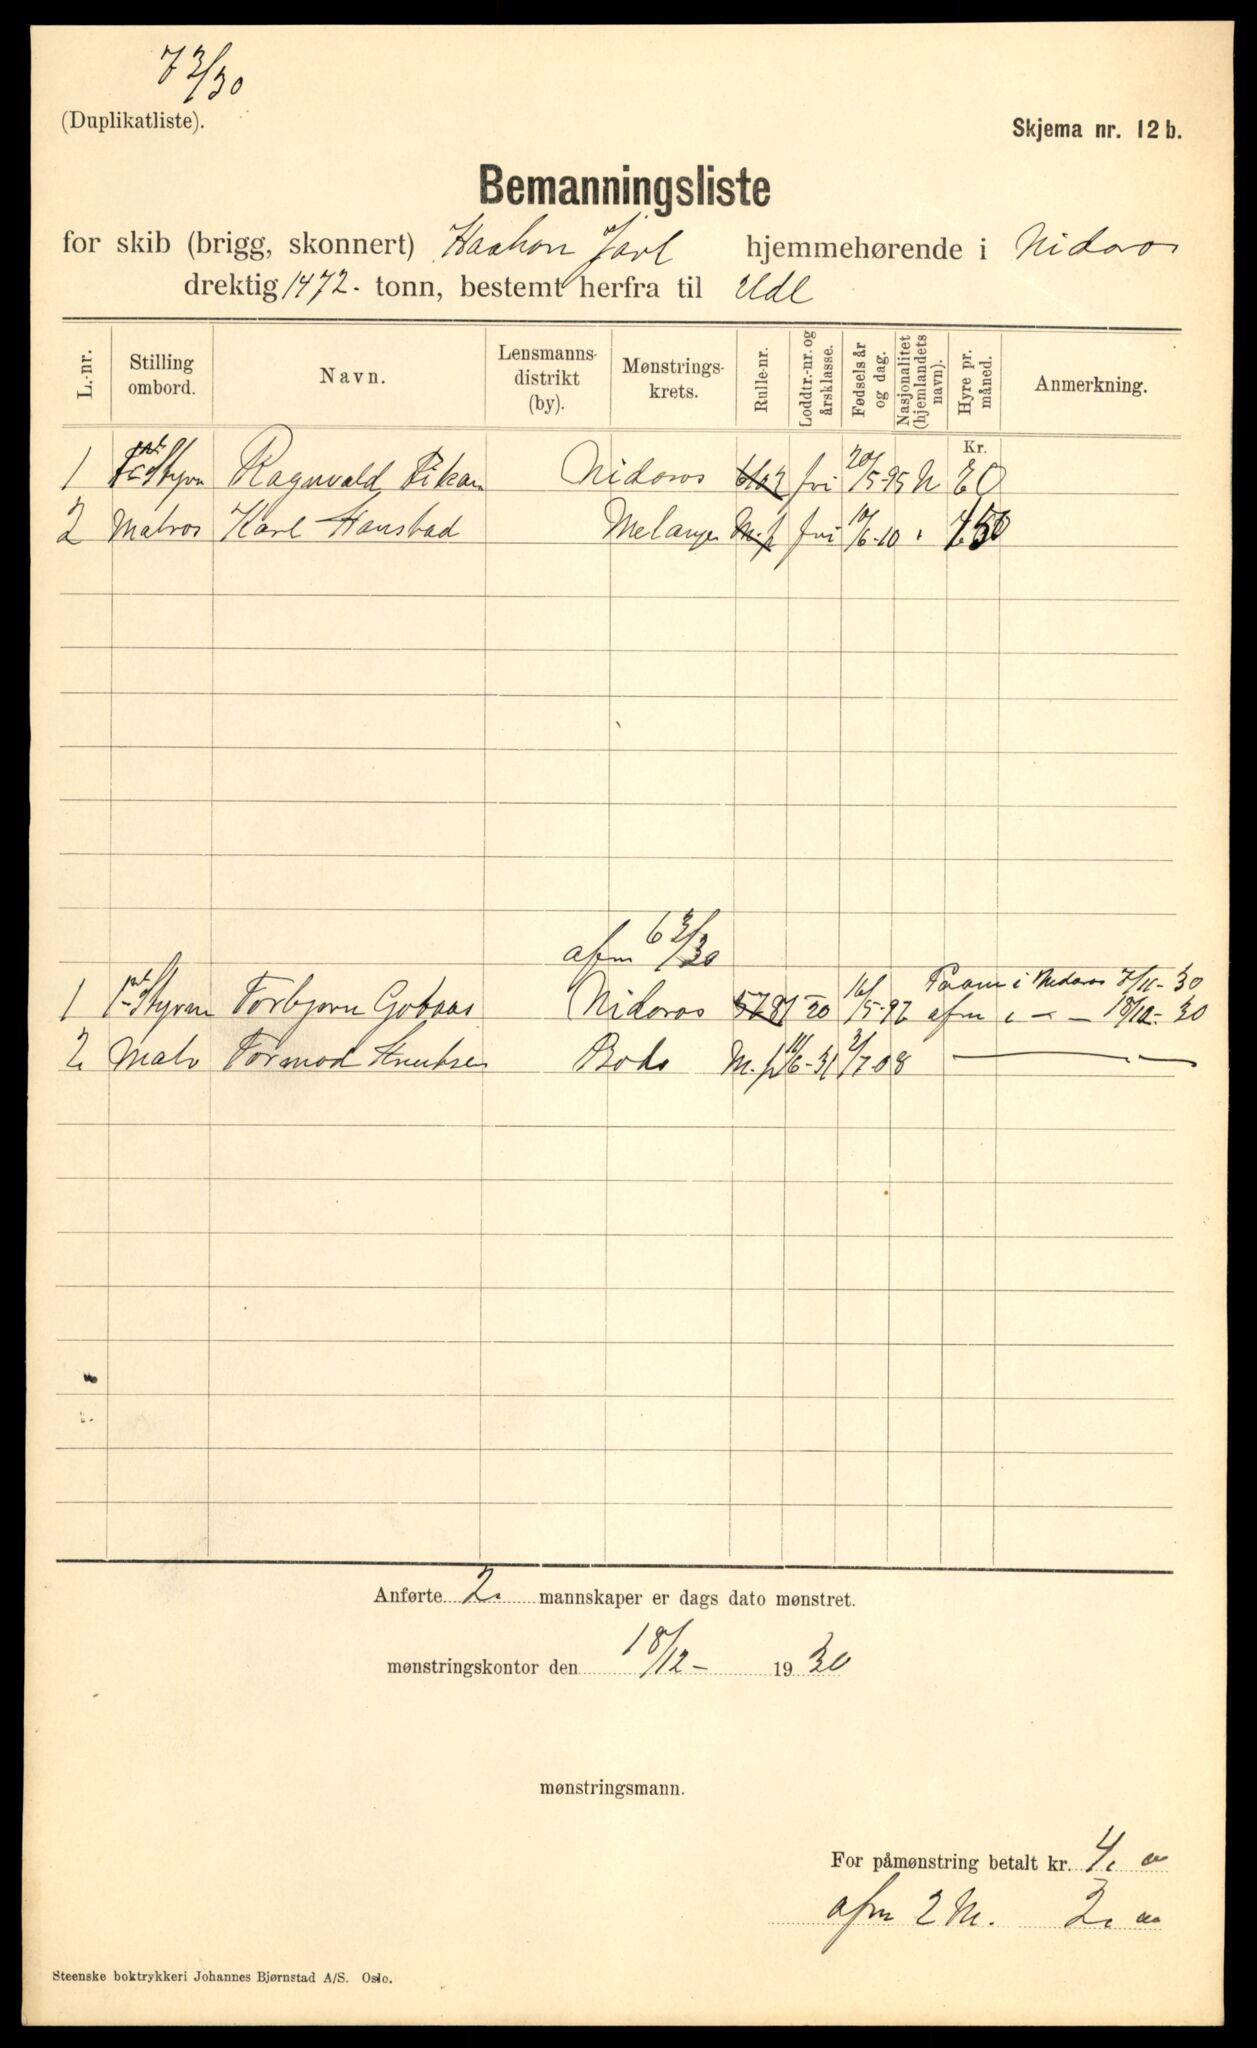 73/30
(Duplikatliste).
Skjema nr. 12 b.
Bemanningsliste
for skib (brigg, skonnert) Haakon Jarl hjemmehørende i Nidaros
drektig 1472. tonn, bestemt herfra til Udl
L.-nr. Stilling ombord. Navn. Lensmanns-distrikt (by). Mønstrings-krets. Rulle-nr. Loddtr.-nr. og årsklasse. Fødsels år og dag. Nasjonalitet (hjemlandets navn). Hyre pr. måned. Anmerkning.
Kr.
1 Styrm Ragnvald Fikan Nidaros fri 20/5-95 N
2 Matros Karl Hansbad Melange M.p fri 10/6-10 "
afm 63/30
1 1st Styrm Torbjørn Gobaas Nidaros 5781 20 16/5-97 Paam i Nidaros 7/11-30
afm i - - 18/12-30
2. Matr Tormod Knutsen Bodø M.p 11/6-31 3/7-08
Anførte 2. mannskaper er dags dato mønstret.
mønstringskontor den 18/12- 1930
mønstringsmann.
For påmønstring betalt kr. 4. "
afm 2 M. 2. "
Steenske boktrykkeri Johannes Bjørnstad A/S. Oslo.